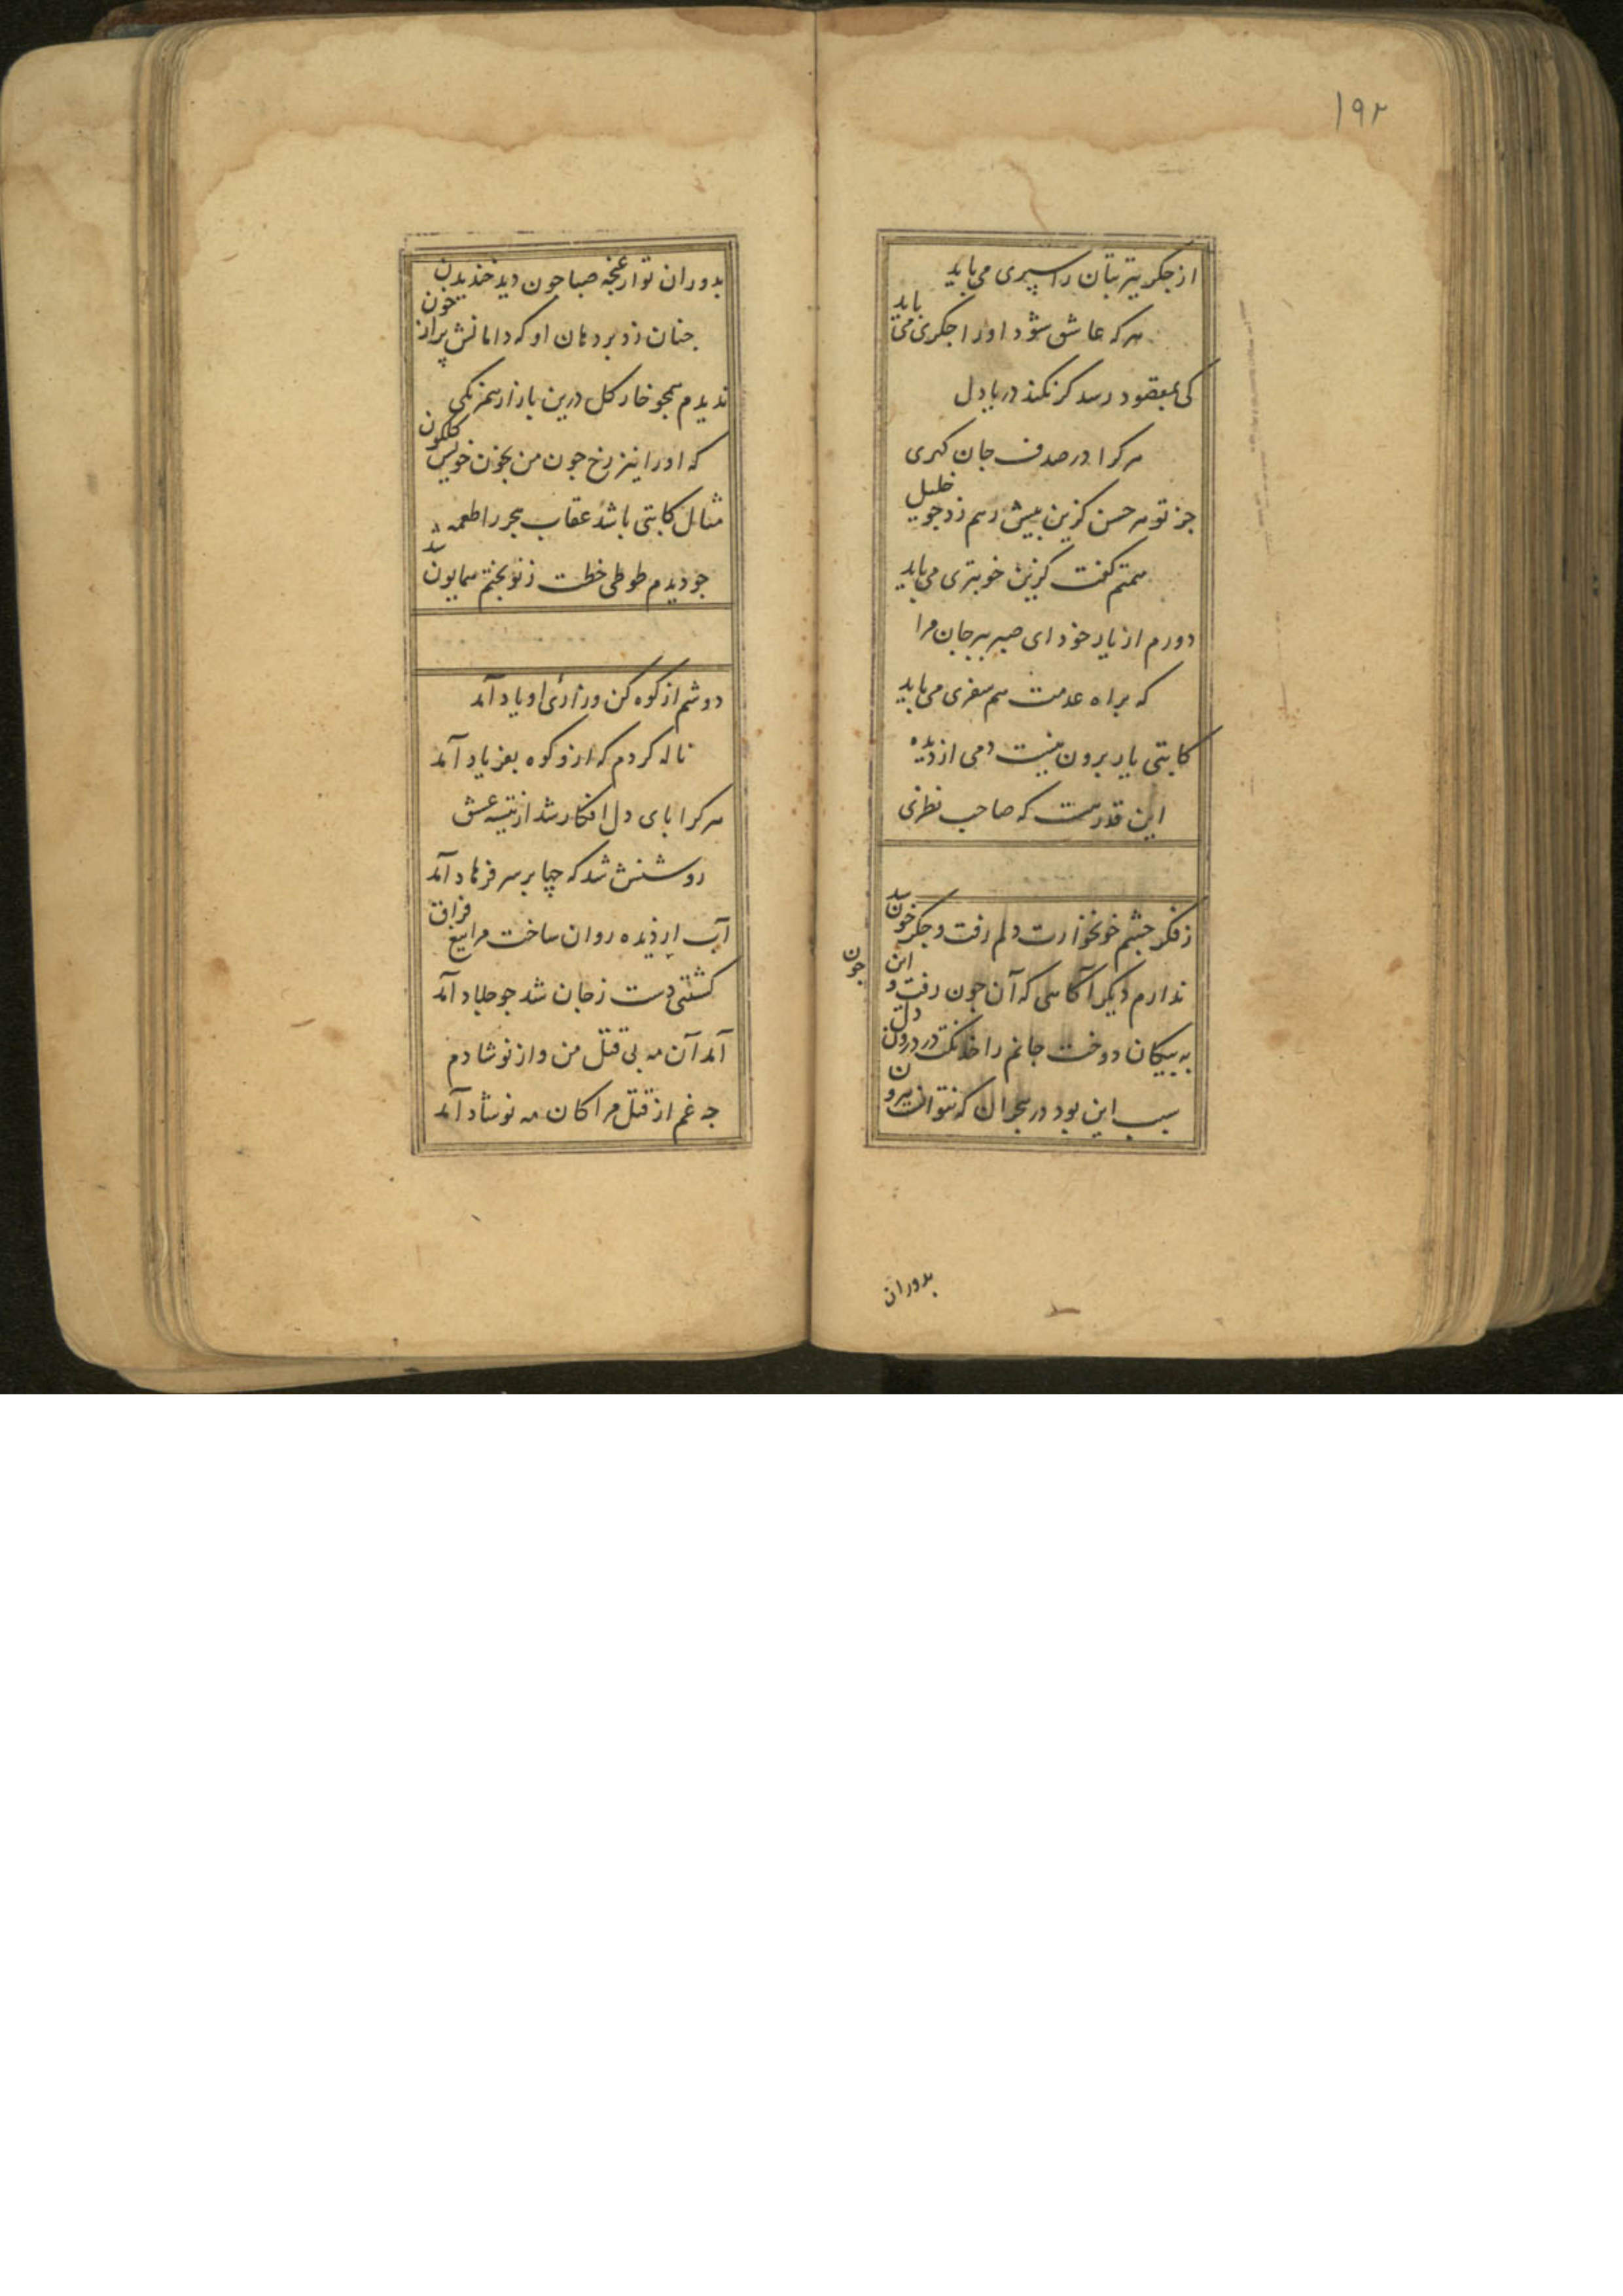 ۱۹۲
از جکر تیر بتان را سپری می باید
هر که عاشق شود او را جکری می باید
کی بمقصود رسد کر نکند دریا دل
هر کرا در صدف جان کهری
جز تو هر حسن کزین بیش رهم زد جو خلیل
همتم کفت کزین خوبتری می باید
دورم از یار خود ای صبر ببر جان مرا
که براه عدمت هم سفری می باید
کاتبی یار برون نیست دمی از دیده
این قدر هست که صاحب نظری
ز فکر چشم خونخوارت دلم رفت و جکر خون شد
ندارم دیکر آکاهی که آن چون رفت و این چون
به پیکان دوخت جانم را خدنکت در درون دل
سبب این بود در هجران که نتوانست بیرون
بدوران
بدوران تو از غنچه صبا چون دید خندیدن
جنان زد بر دهان او که دامانش پر از خون
ندیدم همچو خار کل درین بازار همرنکی
که او را نیز رخ چون من بخون خویش کلکون
مثال کاتبی باشد عقاب هجر را طعمه
جو دیدم طوطی خطت ز نو بختم همایون شد
دوشم از کوه کن و زاری او یاد آمد
ناله کردم که ازو کوه بفریاد آمد
هر کرا پای دل افکار شد از تیشه عشق
روشنش شد که چها بر سر فرهاد آمد
آب از دیده روان ساخت مرا تیغ فراق
کشتنی دست ز جان شد جو جلاد آمد
آمد آن مه پی قتل من و از نو شادم
چه غم از قتل مرا کان مه نوشاد آمد